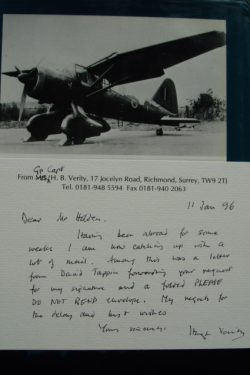 Gp Capt
From H. B. Verity, 17 Jocelyn Road, Richmond, Surrey, TW9 2TJ
Tel. 0181-948 5594 Fax 0181-940 2063
11 Jan 96
Dear Mr Holden,
Having been abroad for some
weeks I am now catching up with a
lot of mail. Among this was a letter
from David Tappin forwarding your request
for my signature and a folded PLEASE
DO NOT BEND envelope. My regrets for
the delay and best wishes
Yours sincerely,
Hugh Verity